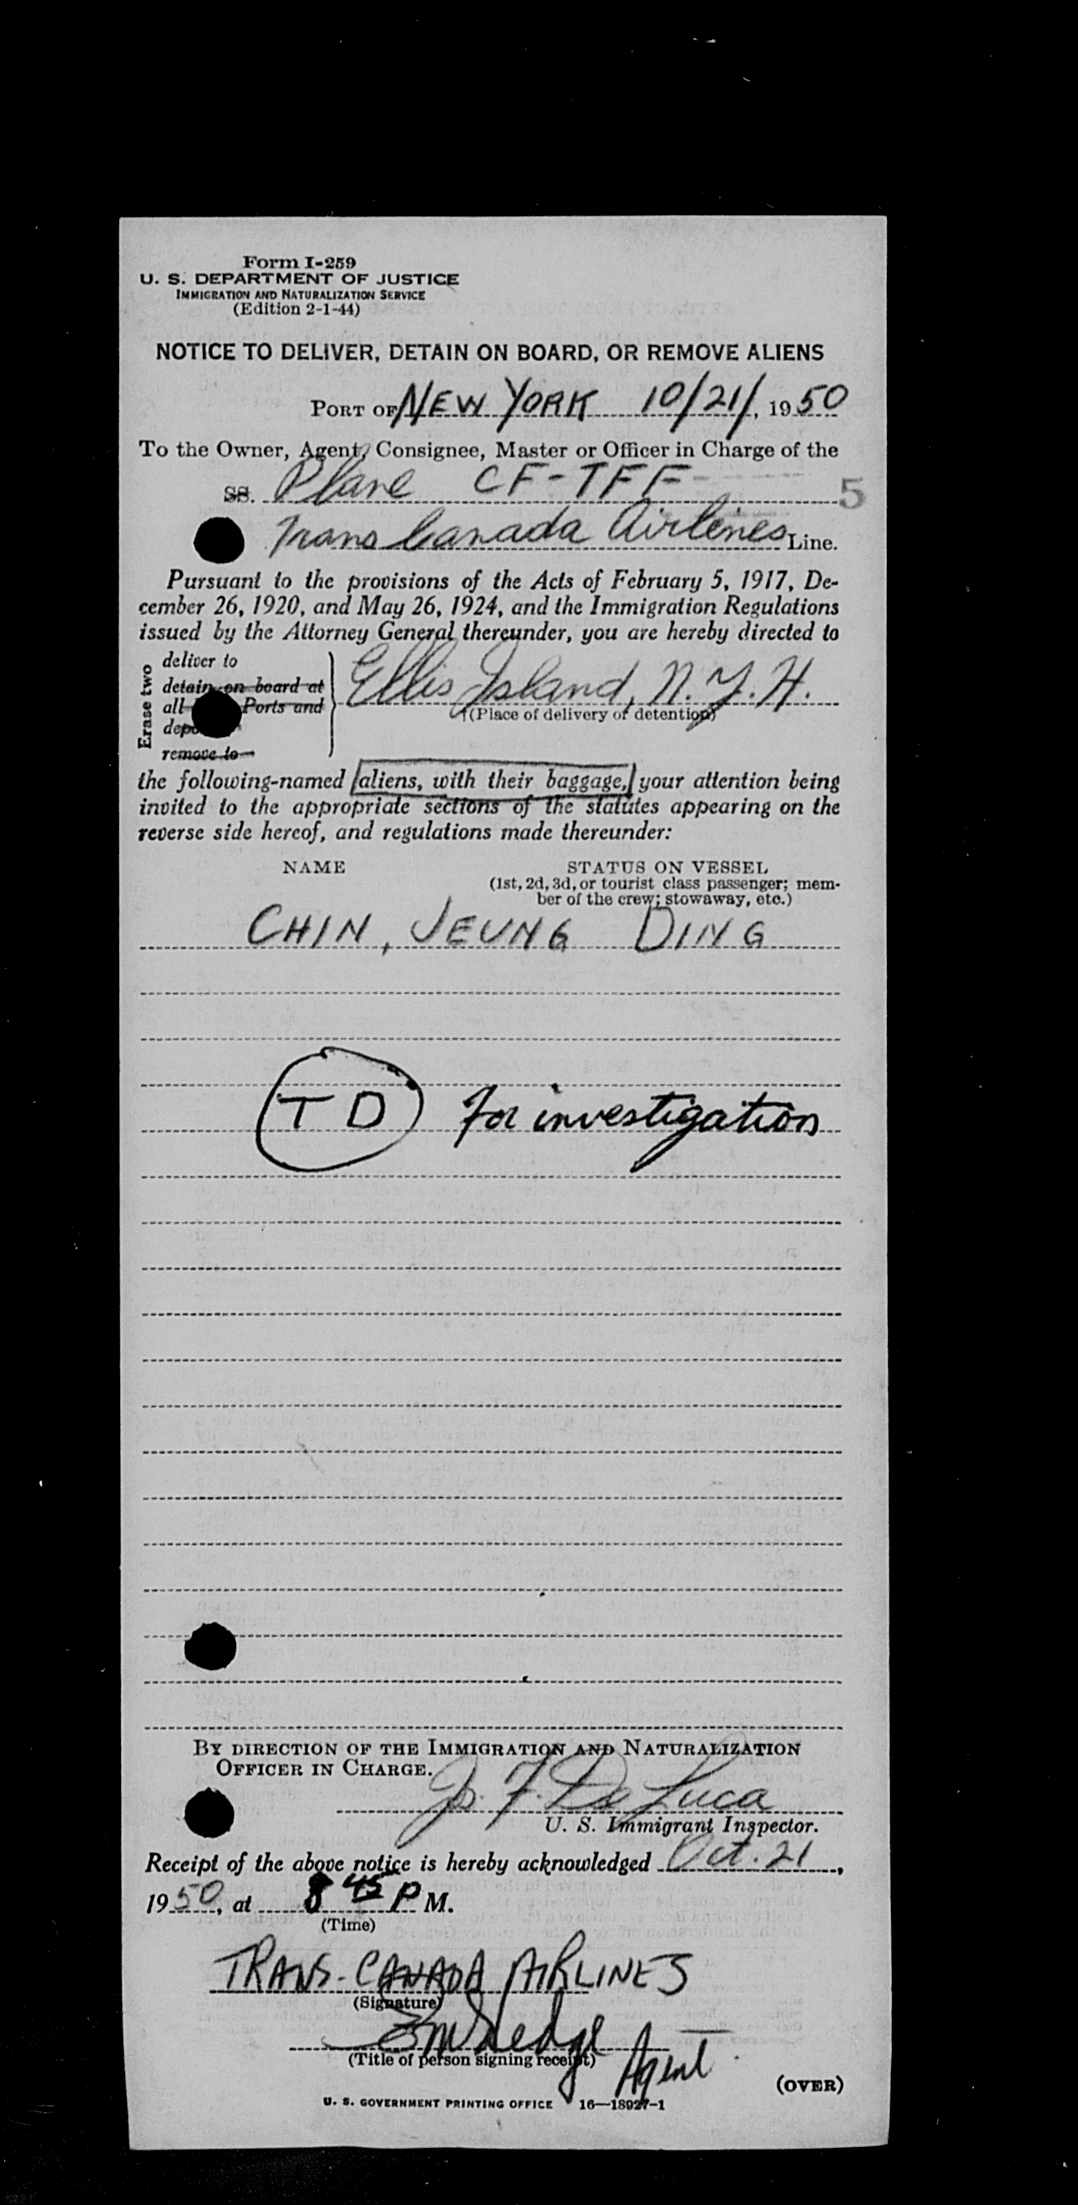 Form I-259
U. S. DEPARTMENT OF JUSTICE
IMMIGRATION AND NATURALIZATION SERVICE
(Edition 2-1-44)
NOTICE TO DELIVER, DETAIN ON BOARD, OR REMOVE ALIENS
PORT OF NEW YORK 10/21/, 1950
To the Owner, Agent, Consignee, Master or Officer in Charge of the
SS. Plane CF-TFF 5
Trans Canada Airlines Line.
Pursuant to the provisions of the Acts of February 5, 1917, De-
cember 26, 1920, and May 26, 1924, and the Immigration Regulations
issued by the Attorney General thereunder, you are hereby directed to
Erase two
deliver to
detain on board at
all Ports and
remove to
Ellis Island, N.Y.H.
(Place of delivery of detention)
the following-named aliens, with their baggage, your attention being
invited to the appropriate sections of the statutes appearing on the
reverse side hereof, and regulations made thereunder:
NAME STATUS ON VESSEL
(1st, 2d, 3d, or tourist class passenger; mem-
ber of the crew; stowaway, etc.)
CHIN, JEUNG DING
TD For investigation
BY DIRECTION OF THE IMMIGRATION AND NATURALIZATION
OFFICER IN CHARGE.
F. De Luca
U. S. Immigrant Inspector.
Receipt of the above notice is hereby acknowledged Oct. 21,
1950, at 8 45 P M.
(Time)
TRANS-CANADA AIRLINES
(Signature)
Agent
(Title of person signing receipt)
(OVER)
U. S. GOVERNMENT PRINTING OFFICE 16—18927-1